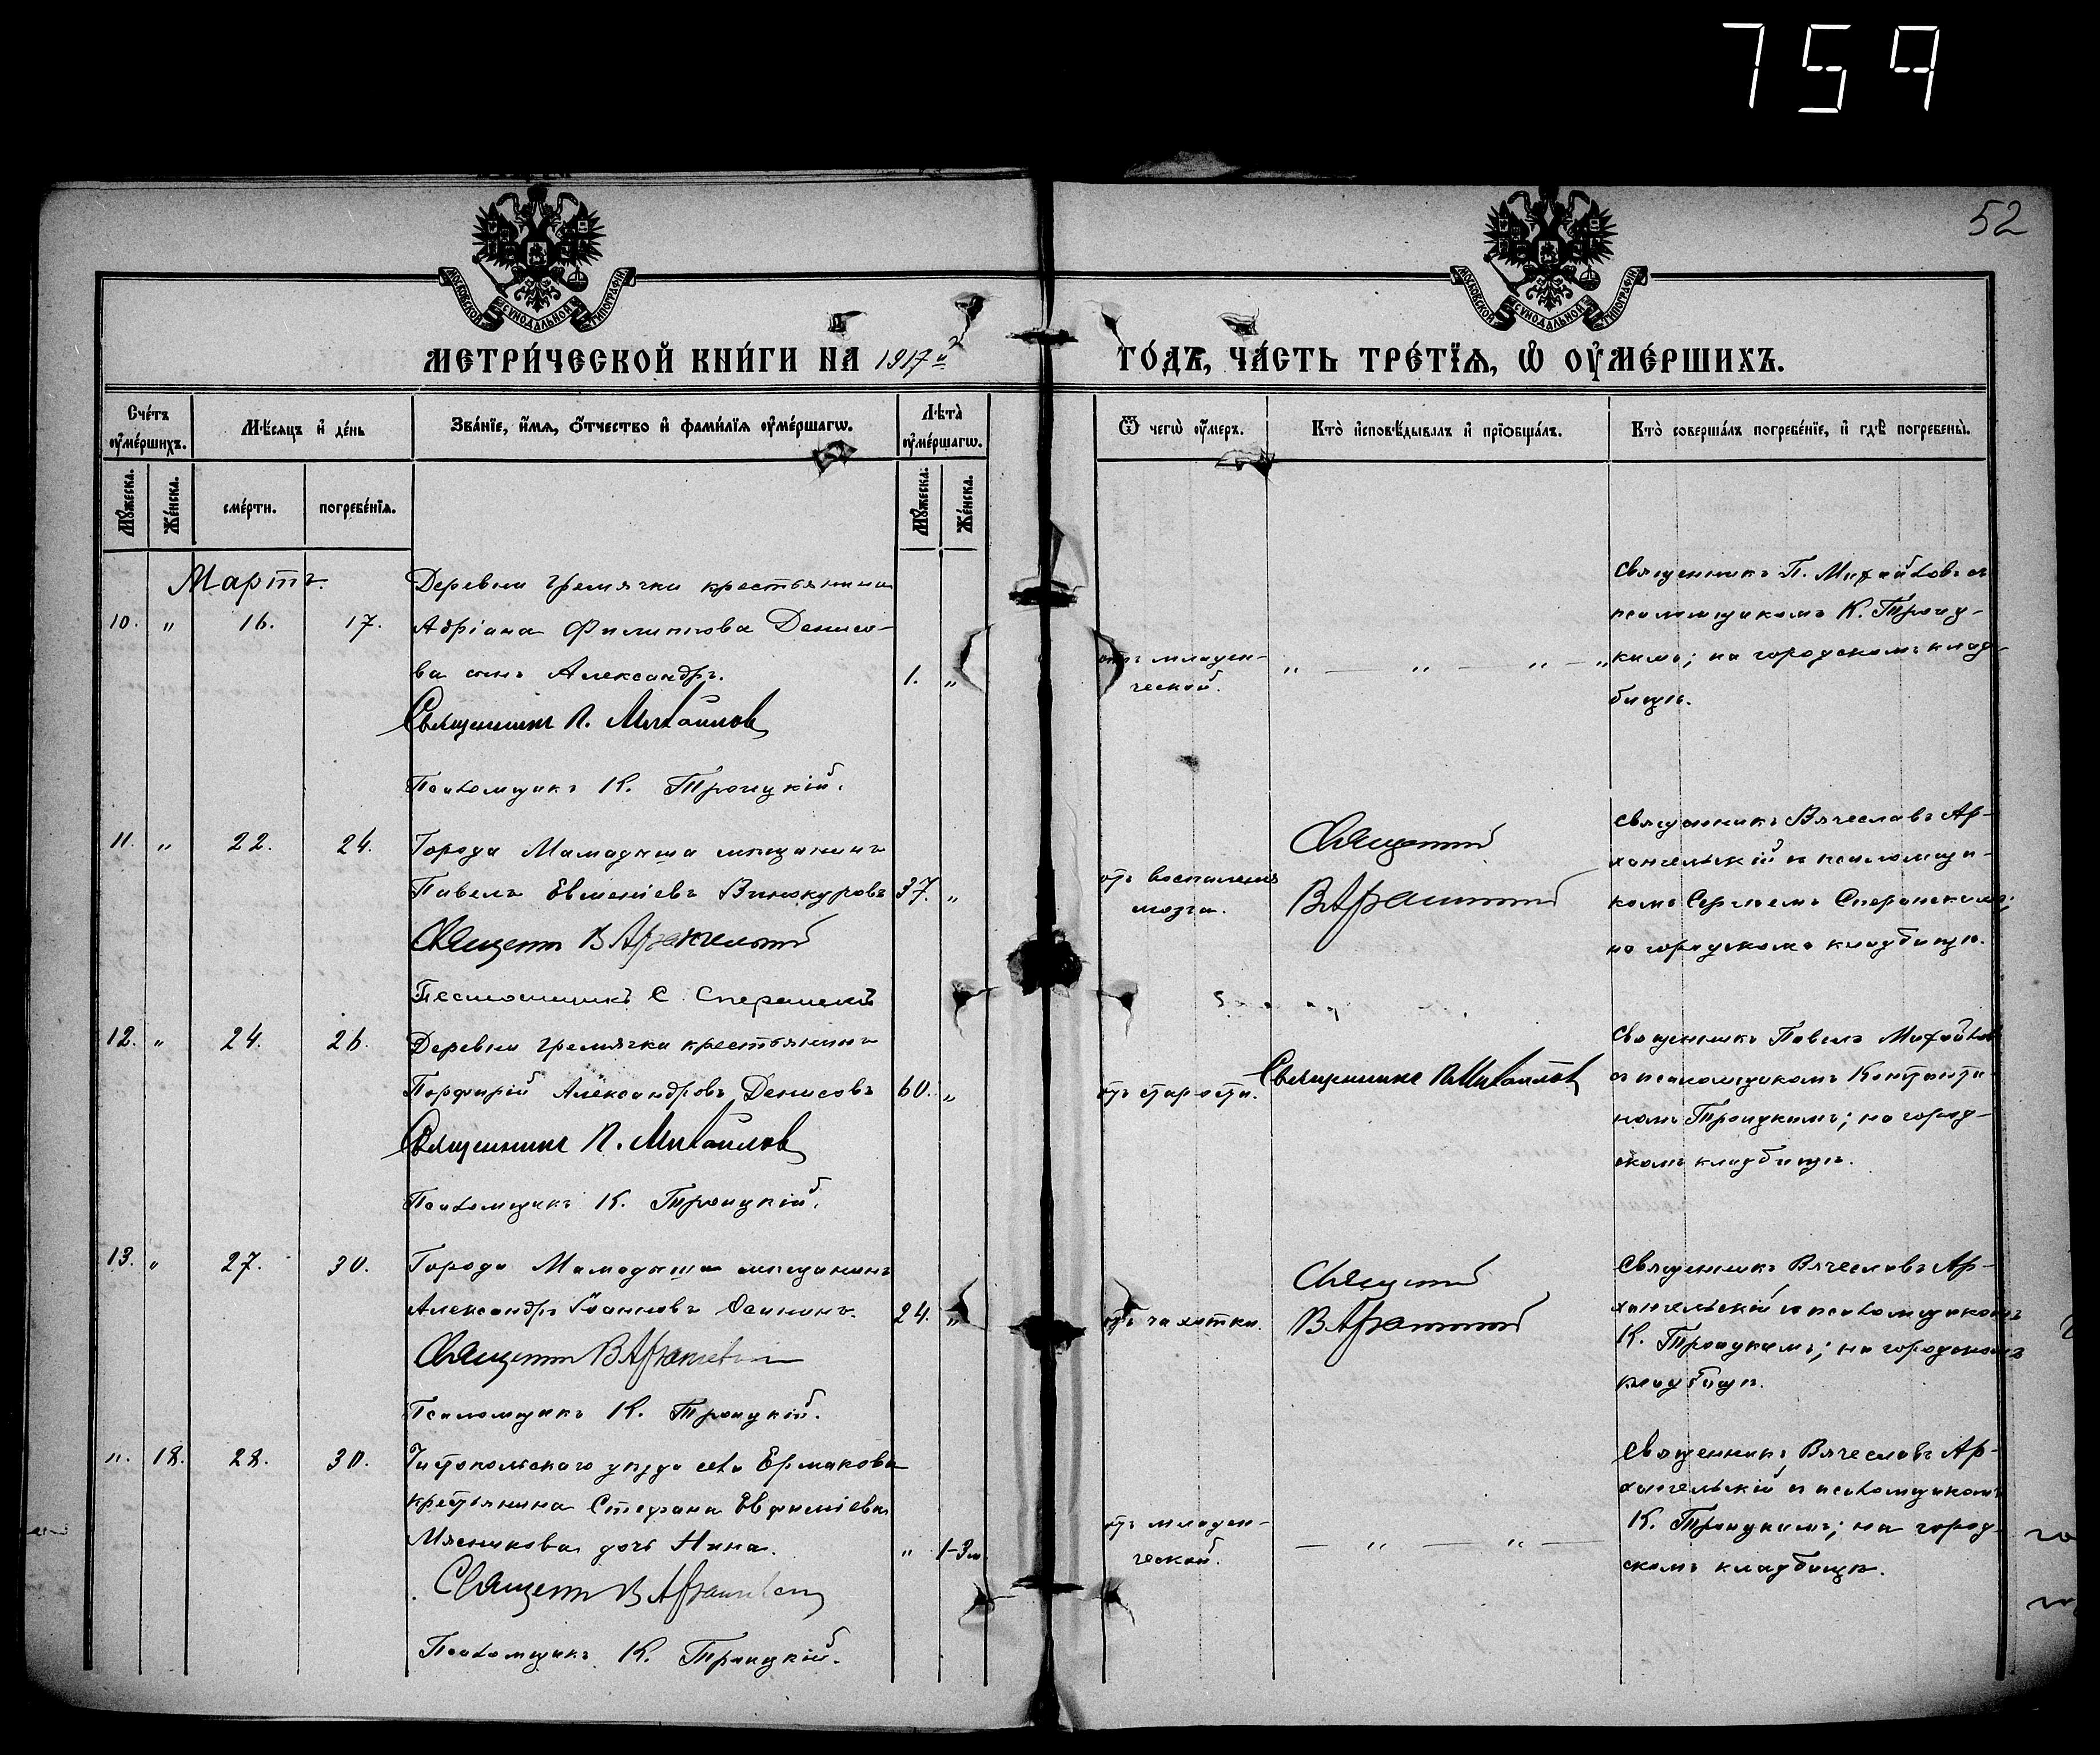 759
52
МОСКОВСКОЙ СѴНОДАЛЬНОЙ ТИПОГРАФІИ
МОСКОВСКОЙ СѴНОДАЛЬНОЙ ТИПОГРАФІИ
МЕТРИ́ЧЕСКОЙ КНИ́ГИ НА 1917й
ГО́ДЪ, ЧА́СТЬ ТРЕ́ТЇѦ, Ѡ҆ ОУ҆МЕ́РШИХЪ.
Сче́тъ оу҆ме́ршихъ.
Мѣ́сяцъ и҆ де́нь
Зва́нїе, и҆́мѧ, ѻ҆́тчество и҆ фами́лїѧ оу҆ме́ршагѡ.
Лѣ́та оу҆ме́ршагѡ.
Ѿ чегѡ̀ оу҆́меръ.
Кто̀ и҆сповѣ́дывалъ и҆ прїѡбща́лъ.
Кто̀ соверша́лъ погребе́нїе, и҆ гдѣ̀ погребены̀.
Мꙋ́жеска.
Же́нска.
сме́рти.
погребе́нїѧ.
Мꙋ́жеска.
Же́нска.
Мартъ.
Деревни Гремячки крестьянина
10. " 16. 17. Адріана Филиппова Денисо-
ва сынъ Александръ. 1. "
Священникъ П. Михайлов
Псаломщикъ К. Троицкій.
отъ младен-
ческой.
" — " — " — "
Священникъ П. Михайловъ съ
псаломщикомъ К. Троиц-
кимъ; на городскомъ клад-
бищѣ.
11. " 22. 24. Города Мамадыша мѣщанинъ
Павелъ Евменіевъ Винокуровъ 37. "
Священн В Архангельский
Псаломщикъ С. Сперанскій
отъ воспаления
мозга.
Священник
В Архангельский
Священникъ Вячеславъ Ар-
хангельскій съ псаломщи-
комъ Сергѣемъ Сперанскимъ;
на городскомъ кладбищѣ.
12. " 24. 26. Деревни Гремячки крестьянинъ
Порфирій Александровъ Денисовъ 60. "
Священникъ П. Михайлов
Псаломщикъ К. Троицкій.
отъ старости.
Священникъ П. Михайлов
Священникъ Павелъ Михайлов
съ псаломщикомъ Константи-
номъ Троицкимъ; на город-
скомъ кладбищѣ.
13. " 27. 30. Города Мамадыша мѣщанинъ
Александръ Іоанновъ 24. "
Священн В Архангельский
Псаломщикъ К. Троицкій.
отъ чахотки.
Священник
В Архангельский
Священникъ Вячеславъ Ар-
хангельскій съ псаломщикомъ
К. Троицкимъ; на городскомъ
кладбищѣ.
". 18. 28. 30. Чистопольскаго уѣзда села Ермакова
крестьянина Стефана Евфиміева
Мясникова дочь Нина. " 1-3м.
Священн В Архангельский
Псаломщикъ К. Троицкій.
отъ младен-
ческой.
— " — " —
Священникъ Вячеславъ Ар-
хангельскій съ псаломщикомъ
К. Троицкимъ; на город-
скомъ кладбищѣ.